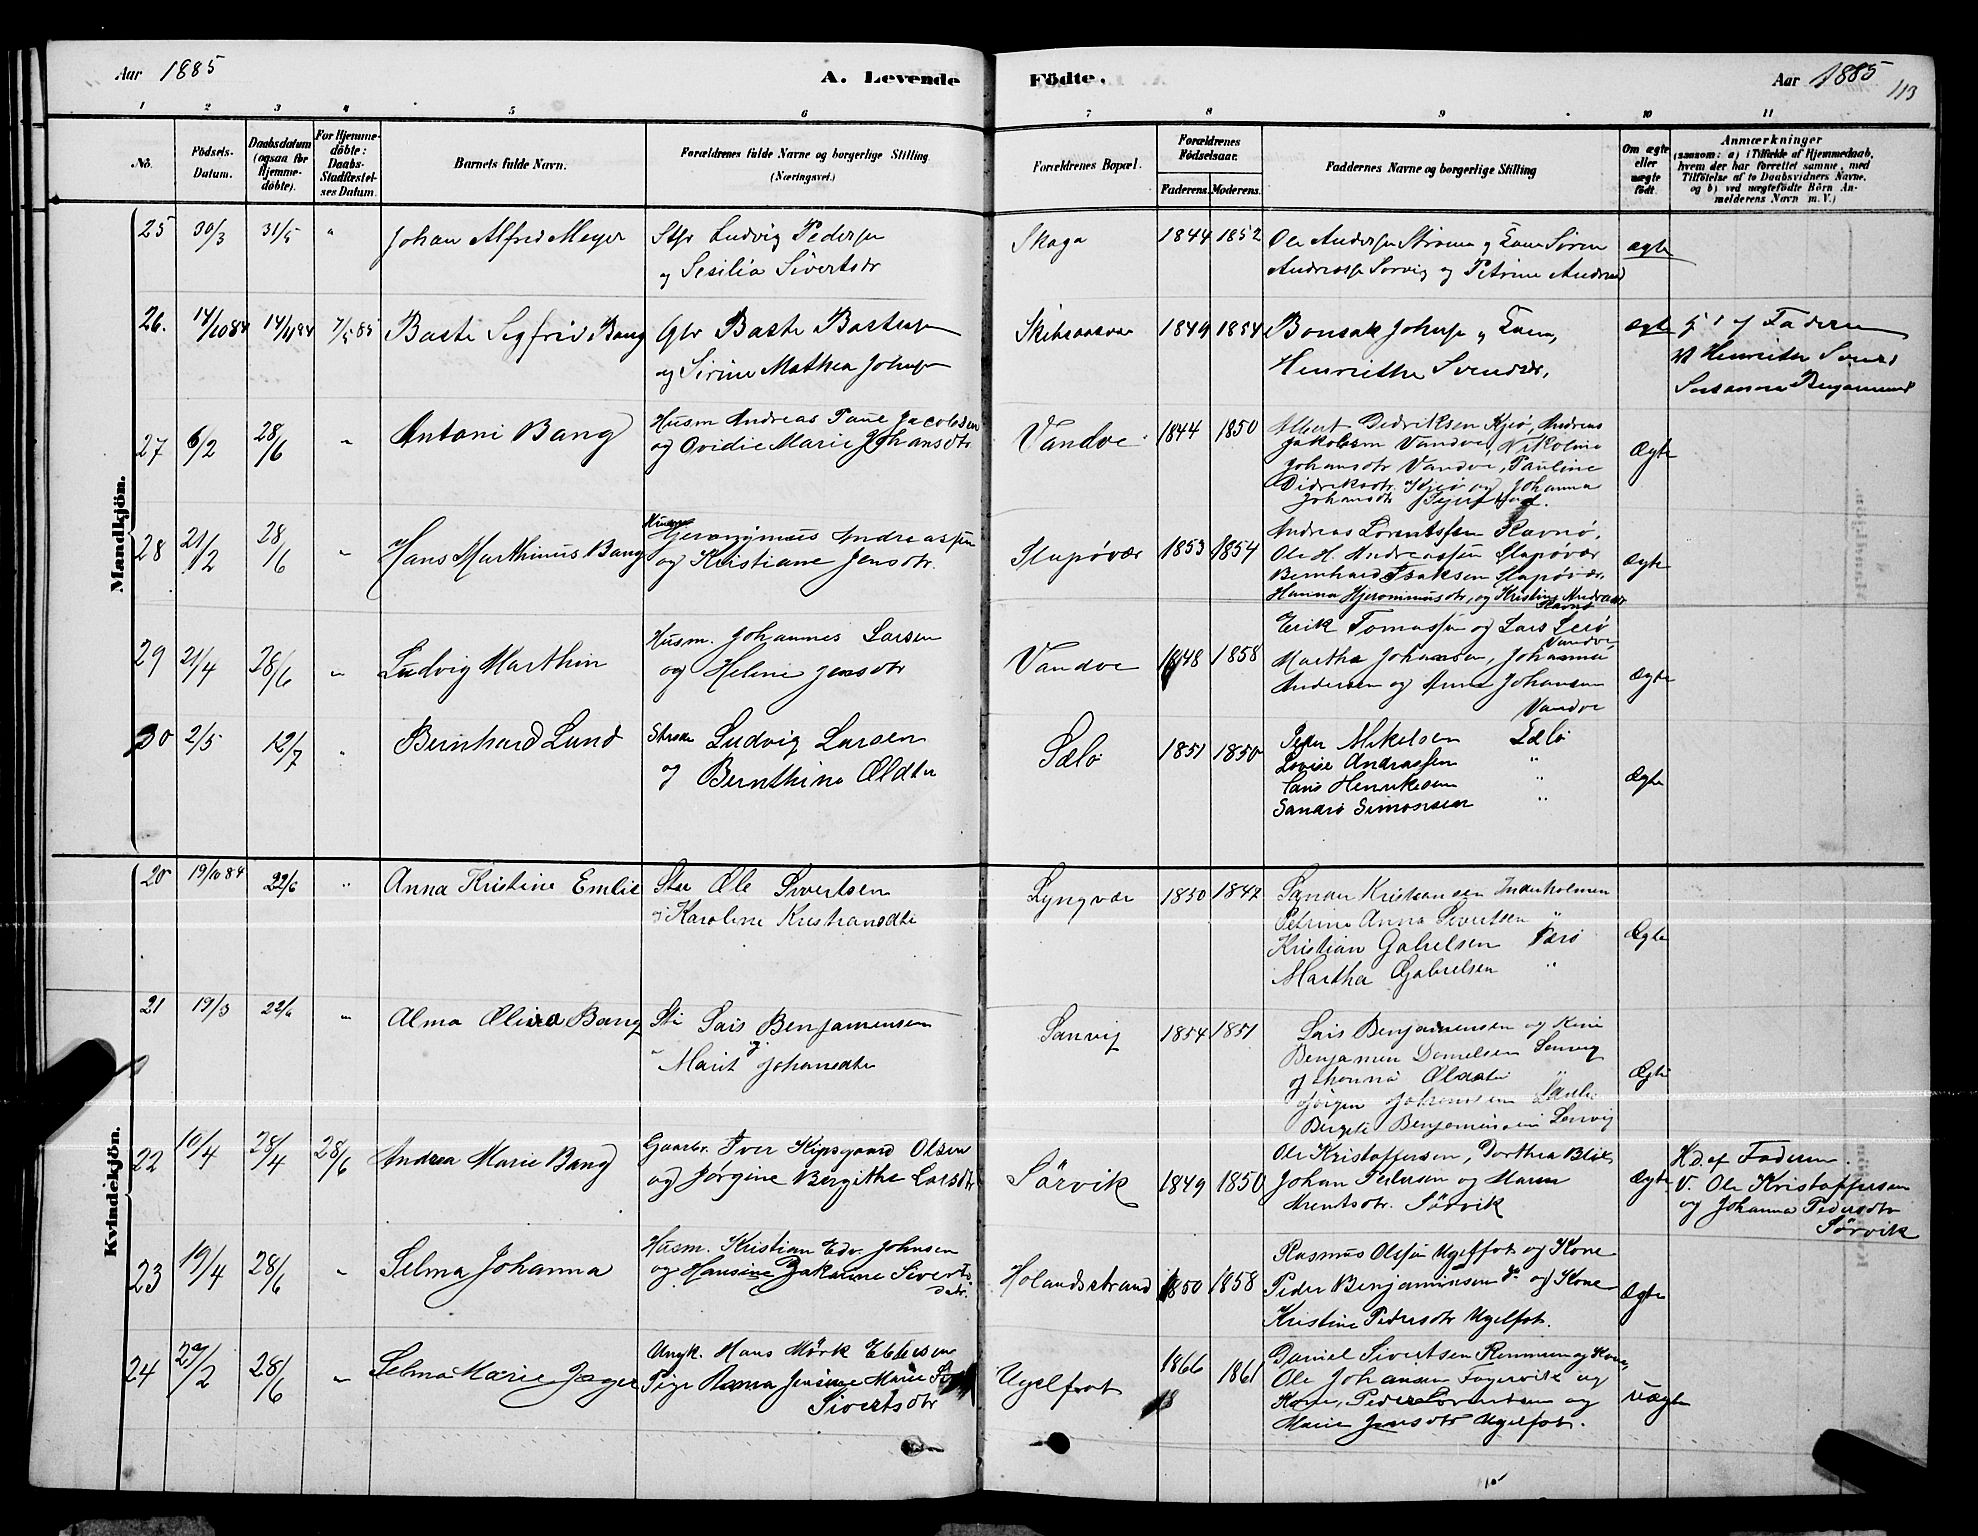 Aar 1885
A. Levende
Födte.
Aar 1885
113
1 2 3 4 5 6 7 8 9 10 11
No.
Födsels-
Datum.
Daabsdatum
(ogsaa for
Hjemme-
döbte).
For Hjemme-
döbte:
Daabs-
Stadfæstel-
ses Datum.
Barnets fulde Navn.
Forældrenes fulde Navne og borgerlige Stilling
(Næringsvei.)
Forældrenes Bopæl.
Forældrenes
Födselsaar.
Faderens. Moderens.
Faddernes Navne og borgerlige Stilling
Om ægte
eller
uægte
födt.
Anmærkninger
(saasom: a) i Tilfælde af Hjemmedaab,
hvem der har forrettet samme, med
Tilföielse af to Daabsvidners Navne,
og b) ved uægtefödte Börn An-
melderens Navn m. V.)
Mandkjön.
25 30/3 31/5 " Johan Alfred Meyer
Str Ludvig Peders
og Sesilia Sivertsdr
Skaga 1844 1852
Ole Anders Ström og Kone Sören
Andreass Sorvig og Petrine Andreasd
ægte
26. 14/10 84 14/11 84 7/5 85 Baste Sigfrid Bang
Gbr Baste Bastes
og Sirine Mathea Johns
1849 1854
Bonsak Johns og Kone,
Henriethe Svendsdr,
ægte
af Faderen
Henriethe Svends
Susanna Benjamins
27 6/2 28/6 " Antoni Bang
Husm Andreas Paul Jacobsen
og Ovidie Marie Johansdtr
Vandve 1844 1850
Albert Dedriksen Kjeö, Andreas
Jakobsen Vandve, Nikoline
Johansdtr Vandve, Pauline
Didriksdtr. Kjeö og Johanna
Johansdtr
Ægte
28 21/2 28/6 " Hans Marthinus Bang
Husm
Hjeronymus Andreassen
og Kristiane Jensdtr.
Slapövær 1853 1854
Andreas Lorentssen Ravnö,
Ole H. Andreassen Slapövær
Bernhard Isaksen Slapövær,
Hanna Hjeronimusdtr, og Kristine Andreasdr
Ravnö
Ægte
29 21/4 28/6 " Ludvig Marthin
Husm. Johannes Larsen
og Heline Jensdtr
Vandve 1848 1858
Erik Tomassen og Lars Lerö
Vandve,
Martha Johansen, Johanna
Andersen og Anna Johansen
Vandve
Ægte
30 2/5 12/7 " Bernhard Lund
Ludvig Larsen
og Bernthine Oldtr
Sælö 1851 1850
Peder Mikelsen Sælö
Lovise Andrassen "
Lars Henriksen "
Sandro Simonsen "
Ægte
Kvindekjön.
20 19/10 84 22/6 " Anna Kristine Emlie
Str Ole Sivertsen
og Karoline Kristiansdtr
Lyngvær 1850 1842
Sander Kristiansen Inderholmen
Petrine Anna Sivertsen "
Kristian Gabrelsen Færö
Martha Gabrelsen "
Ægte
21 19/3 22/6 " Alma Olina Bang
Str Lars Benjamensen
og
Marit Johansdtr
Sanvig 1854 1851
Lars Benjamensen og Kone
Benjamen Danielsen
og Hanna Olsdtr
Jörgen Johansen
Birgite Benjaminsen
Ægte
22 10/4 28/4 28/6 Andrea Marie Bang
Gaarbr. Iver Kipsgaard Olsen
og Jörgine Bergithe Larsdtr
Sörvik 1849 1850
Ole Kristoffersen, Dorthea Blix
Johan Pedersen og Maren
Arentsdtr. Sörvik
Ægte
H.d. af Faderen.
V. Ole Kristoffersen
og Johanna Pedersdtr
Sörvik
23 19/4 28/6 " Selma Johanna
Husm. Kristian Edv. Johnsen
og Hansine Jakobine Siverts
datr.
Holandsstrand 1850 1858
Rasmus Olssen Ugelfot og Kone
Peder Benjaminsen og Kone
Kristine Pedersdtr Ugelfot.
Ægte
24 27/2 28/6 " Selma Marie Jager
Ungk. Hans Mörk Ebbesen
Pige Hanna Jensine Marie
Sivertsdtr
Ugelfot 1866 1861
Daniel Sivertsen Remmen og Kone,
Ole Johansen Fagervik og
Kone, Peder Lorentsen og
Marie Jensdtr Ugelfot.
uægte